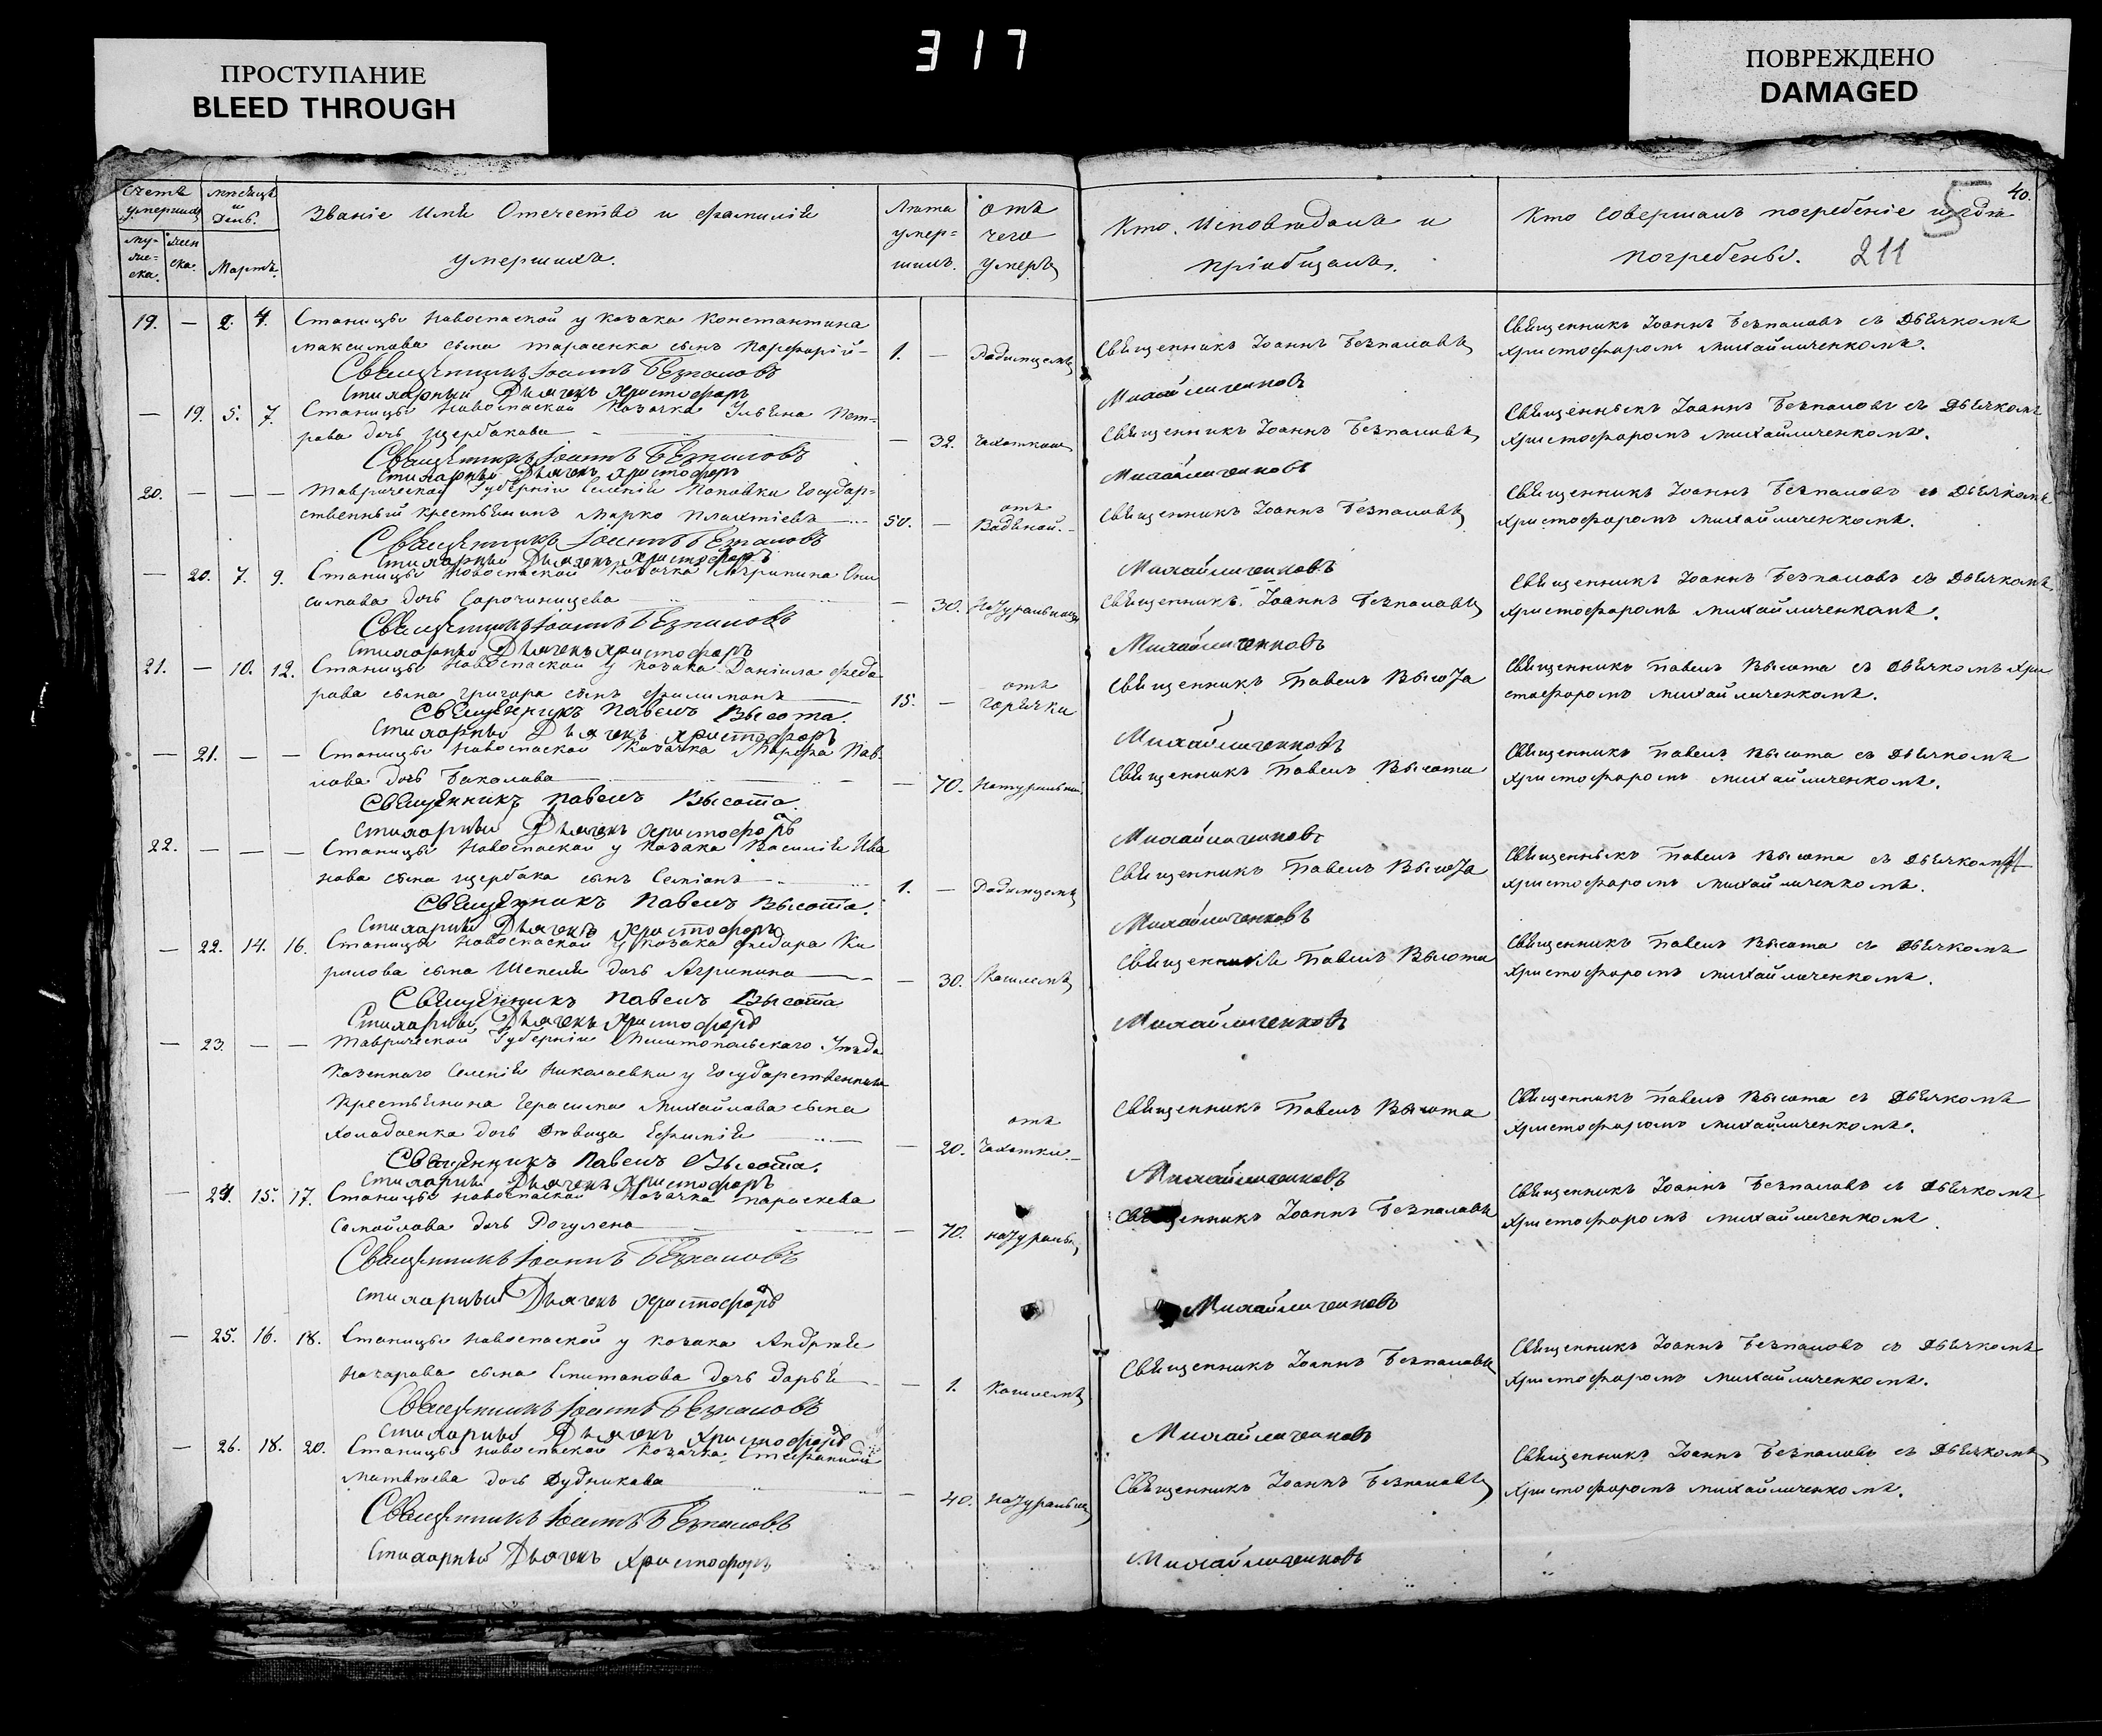 317
ПРОСТУПАНИЕ
BLEED THROUGH
ПОВРЕЖДЕНО
DAMAGED
40.
211
Счетъ умершихъ
муже-ска.
женска.
Мѣсяцъ и день.
Мартъ.
Званіе Имя Отечество и фамилія
умершихъ.
Лѣта умер-шихъ.
отъ чего умеръ
Кто Исповѣдалъ и
пріобщалъ.
Кто совершалъ погребеніе и гдѣ
погребены.
19. — 2. 4. Станицы Новоспаской у козака Константина
Максимова сына Тарасенка сынъ Порфирій 1. — Родимцемъ Священникъ Іоаннъ Безпаловъ
Священникъ Іоаннъ Безпаловъ съ Дьячкомъ
Христофоромъ Михайличенкомъ.
Священникъ Іоаннъ Безпаловъ
Стихарный Дьячекъ Христофоръ Михайличенковъ
— 19. 5. 7. Станицы Новоспаской Козачка Ульяна Пет-
рова дочь Щербакова — 32. Чахоткою Священникъ Іоаннъ Безпаловъ
Священникъ Іоаннъ Безпаловъ съ Дьячкомъ
Христофоромъ Михайличенкомъ.
Священникъ Іоаннъ Безпаловъ
Стихарный Дьячекъ Христофоръ Михайличенковъ
20. — — — Таврической Губерніи Селенія Поповки Государ-
ственный крестьянинъ Марко 50. — отъ Водяной. Священникъ Іоаннъ Безпаловъ
Священникъ Іоаннъ Безпаловъ съ Дьячкомъ
Христофоромъ Михайличенкомъ.
Священникъ Іоаннъ Безпаловъ
Стихарный Дьячекъ Христофоръ Михайличенковъ
— 20. 7. 9. Станицы Новоспаской Козачка Агрипина Они
симова дочь Сорочинцева — 30. Натурально Священникъ Іоаннъ Безпаловъ
Священникъ Іоаннъ Безпаловъ съ Дьячкомъ
Христофоромъ Михайличенкомъ.
Священникъ Іоаннъ Безпаловъ
Стихарный Дьячекъ Христофоръ Михайличенковъ
21. — 10. 12. Станицы Новоспаской у козака Даніила Федо
рова сына Григора сынъ Филимонъ 15. — отъ горячки Священникъ Павелъ Высота
Священникъ Павелъ Высота съ Дьячкомъ Хри
стофоромъ Михайличенкомъ.
Священникъ Павелъ Высота.
Стихарный Дьячекъ Христофоръ Михайличенковъ
— 21. — — Станицы Новоспаской Козачка Марфа Пав-
лова дочь Баколова — 70. Натурально Священникъ Павелъ Высота
Священникъ Павелъ Высота съ Дьячкомъ
Христофоромъ Михайличенкомъ.
Священникъ Павелъ Высота.
Стихарный Дьячекъ Христофоръ Михайличенковъ
22. — — — Станицы Новоспаской у козака Василія Ива
нова сына Щербака сынъ Семіонъ 1. — Родимцемъ Священникъ Павелъ Высота
Священникъ Павелъ Высота съ Дьячкомъ
Христофоромъ Михайличенкомъ.
Священникъ Павелъ Высота.
Стихарный Дьячекъ Христофоръ Михайличенковъ
— 22. 14. 16. Станицы Новоспаской у козака Федора Ки
рилова сына Шепеля дочь Агрипина — 30. Кашлемъ Священникъ Павелъ Высота
Священникъ Павелъ Высота съ Дьячкомъ
Христофоромъ Михайличенкомъ.
Священникъ Павелъ Высота
Стихарный Дьячекъ Христофоръ Михайличенковъ
— 23. — — Таврической Губерніи Мелитопольскаго Уѣзда
Казеннаго Селенія Николаевки у Государственнаго
Крестьянина Герасима Михайлова сына
Холодаенка дочь Девица Ефимія — 20. отъ Чахотки. Священникъ Павелъ Высота
Священникъ Павелъ Высота съ Дьячкомъ
Христофоромъ Михайличенкомъ.
Священникъ Павелъ Высота.
Стихарный Дьячекъ Христофоръ Михайличенковъ
— 24. 15. 17. Станицы Новоспаской Козачка Параскева
Самойлова дочь Рогулена — 70. натураль. Священникъ Іоаннъ Безпаловъ
Священникъ Іоаннъ Безпаловъ съ Дьячкомъ
Христофоромъ Михайличенкомъ.
Священникъ Іоаннъ Безпаловъ
Стихарный Дьячекъ Христофоръ Михайличенковъ
— 25. 16. 18. Станицы Новоспаской у козака Андрѣя
Назарова сына дочь Дарья — 1. Кашлемъ Священникъ Іоаннъ Безпаловъ
Священникъ Іоаннъ Безпаловъ съ Дьячкомъ
Христофоромъ Михайличенкомъ.
Священникъ Іоаннъ Безпаловъ
Стихарный Дьячекъ Христофоръ Михайличенковъ
— 26. 18. 20. Станицы Новоспаской Козачка Стефанида
Матвѣева дочь Дудникова — 40. Натурально Священникъ Іоаннъ Безпаловъ
Священникъ Іоаннъ Безпаловъ съ Дьячкомъ
Христофоромъ Михайличенкомъ.
Священникъ Іоаннъ Безпаловъ
Стихарный Дьячекъ Христофоръ Михайличенковъ